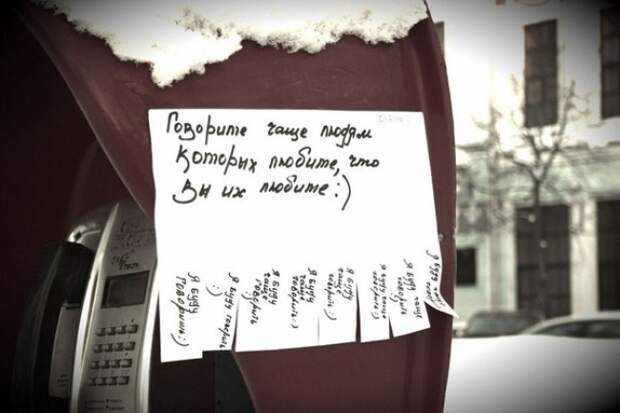 Говорите чаще людям
которых любите, что
Вы их любите:)
Я буду
говорить :)
Я буду говорить
:)
Я буду
чаще
говорить
Я буду
чаще
говорить :)
Я буду
чаще
говорить
Я буду чаще
говорить
Я буду
говорить
чаще
Я буду